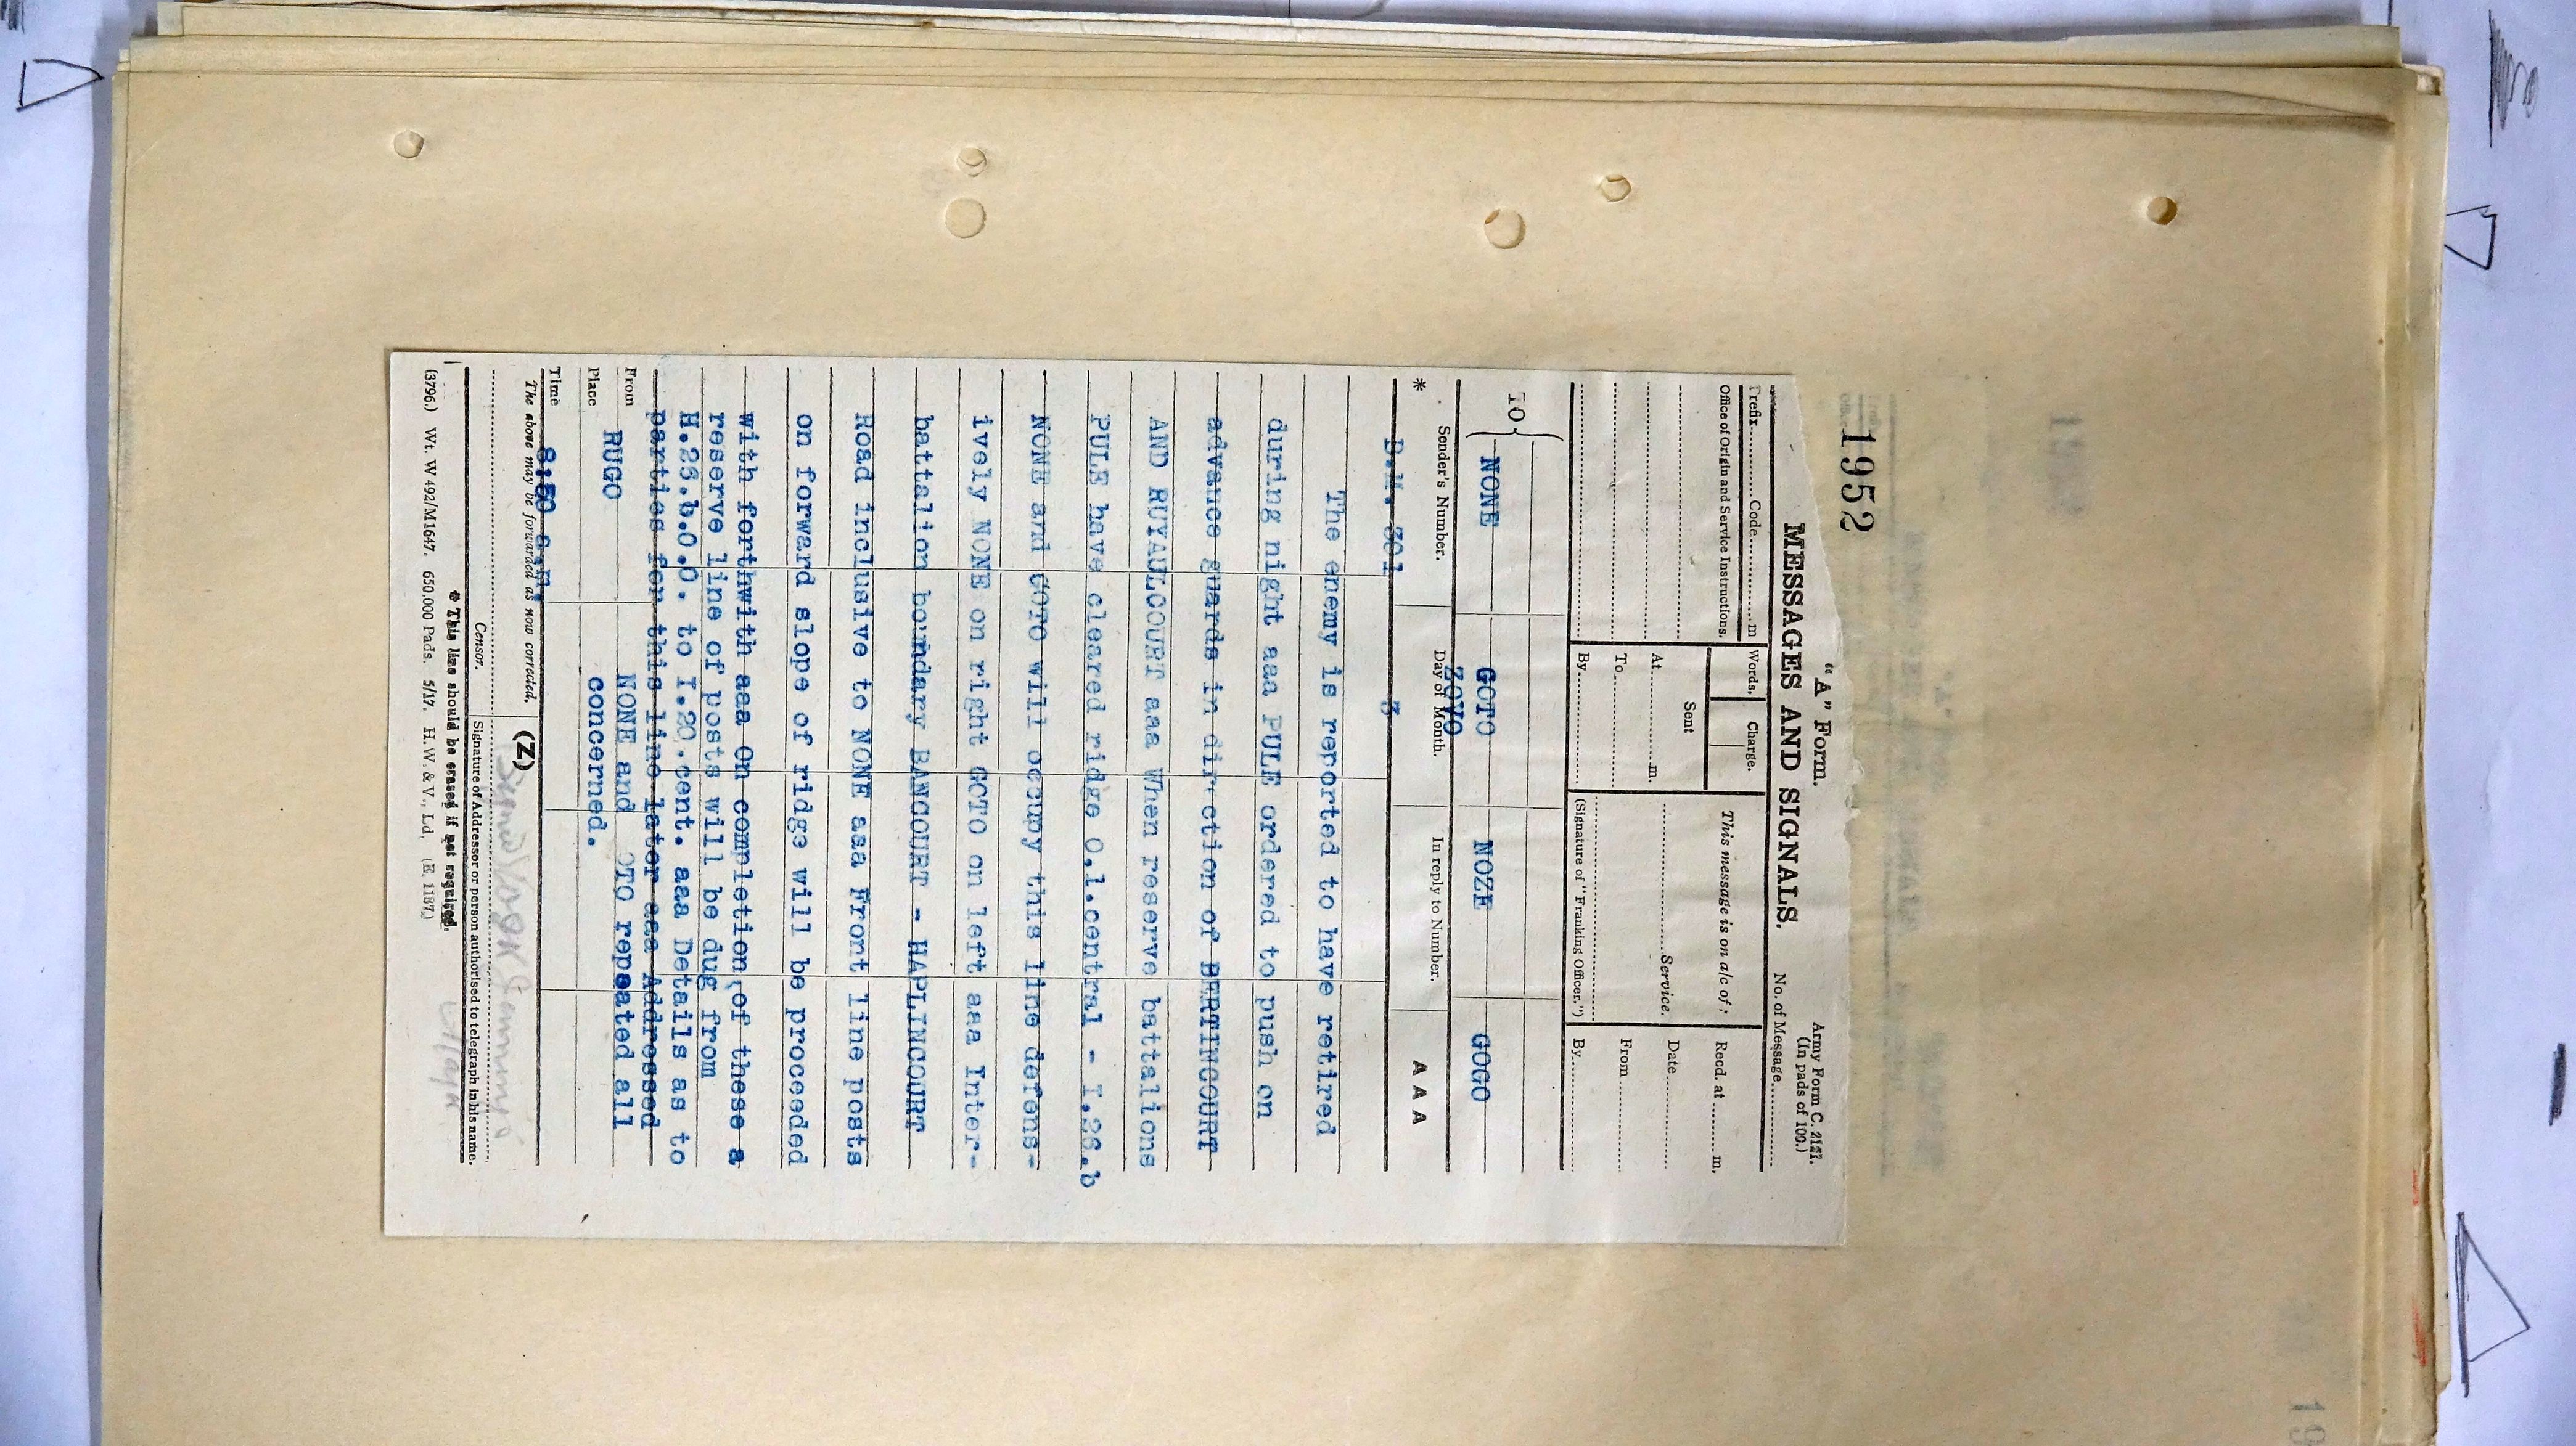 1952
"A" Form.
Army Form C. 2121.
(In pads of 100.)
MESSAGES AND SIGNALS.
No. of Message
Prefix Code m
Words. Charge.
This message is on a/c of:
Recd. at m.
Office of Origin and Service Instructions.
Sent
Date
At m.
Service.
From
To
By
(Signature of "Franking Officer.")
By
TO
NONE GOTO NOZE GOGO
ZOVO
* Sender's Number. Day of Month. In reply to Number. A A A
B.M. 301 3
The enemy is reported to have retired
during night aaa PULE ordered to push on
advance guards in direction of BERTINCOURT
AND RUYAULCOURT aaa When reserve battalions
PULE have cleared ridge O.1.central - I.26.b
NONE and GOTO will occupy this line defens-
ively NONE on right GOTO on left aaa Inter-
battalion boundary BANCOURT - HAPLINCOURT
Road inclusive to NONE aaa Front line posts
on forward slope of ridge will be proceeded
with forthwith aaa On completion of these a
reserve line of posts will be dug from
to I.20.cent. aaa Details as to
parties for this line later aaa Addressed
NONE and OTO repeated all
concerned.
From RUGO
Place
Time 8:50
The above may be forwarded as now corrected. (Z)
Censor. Signature of Addressor or person authorised to telegraph in his name.
* This line should be erased if not required.
(3796.) Wt. W 492/M1647. 650,000 Pads. 5/17. H.W. & V., Ld. (E. 1187.)